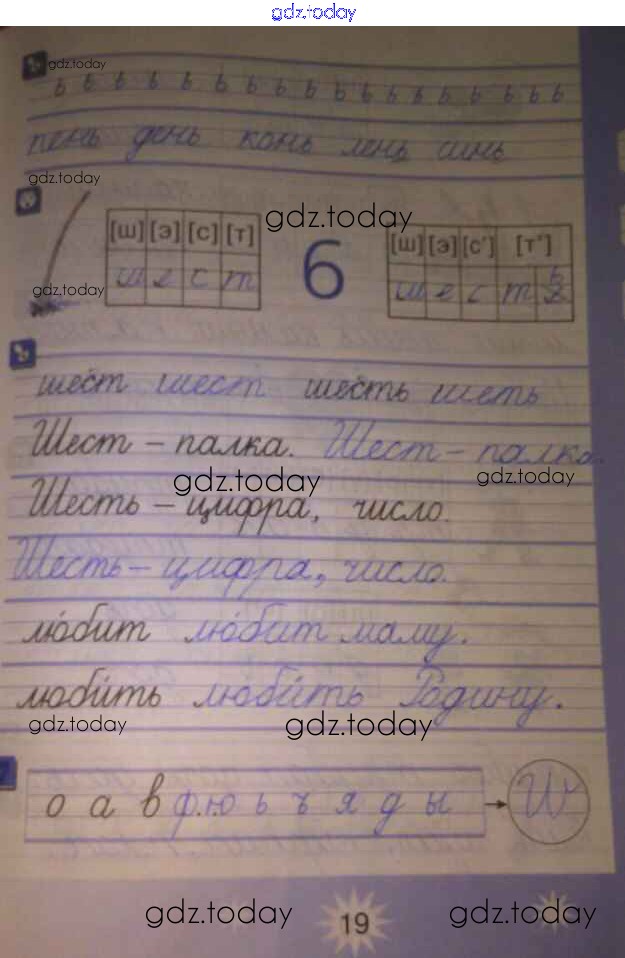 gdz.today
ь gdz.today
ь ь ь ь ь ь ь ь ь ь ь ь ь ь ь ь ь ь
пень день конь лень синь
gdz.today
[ш] [э] [с] [т] gdz.today [ш] [э] [с'] [т']
ш е с т 6 ш е с т ь
gdz.today
ь
шест шест шесть шесть
Шест – палка. Шест – палка.
gdz.today gdz.today
Шесть – цифра, число.
Шесть – цифра, число.
лю́бит лю́бит маму.
люби́ть люби́ть Родину.
gdz.today gdz.today
о а в ф ю ь ъ я д ы → Ш
gdz.today 19 gdz.today